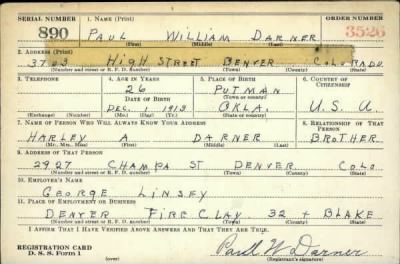 SERIAL NUMBER 1. NAME (Print) ORDER NUMBER
890 PAUL WILLIAM DARNER 3526
(First) (Middle) (Last)
2. ADDRESS (Print)
3763 HIGH STREET DENVER COLORADO
(Number and street or R. F. D. number) (Town) (County) (State)
3. TELEPHONE 4. AGE IN YEARS 5. PLACE OF BIRTH 6. COUNTRY OF CITIZENSHIP
26 PUTMAN
DATE OF BIRTH (Town or county)
DEC. 1 1913 OKLA. U. S. A
(Exchange) (Number) (Mo.) (Day) (Yr.) (State or country)
7. NAME OF PERSON WHO WILL ALWAYS KNOW YOUR ADDRESS 8. RELATIONSHIP OF THAT PERSON
HARLEY A DARNER BROTHER
(Mr., Mrs., Miss) (First) (Middle) (Last)
9. ADDRESS OF THAT PERSON
2927 CHAMPA ST DENVER COLO
(Number and street or R. F. D. number) (Town) (County) (State)
10. EMPLOYER'S NAME
GEORGE LINSEY
11. PLACE OF EMPLOYMENT OR BUSINESS
DENVER FIRE CLAY 32 + BLAKE
(Number and street or R. F. D. number) (Town) (County) (State)
I AFFIRM THAT I HAVE VERIFIED ABOVE ANSWERS AND THAT THEY ARE TRUE.
REGISTRATION CARD
D. S. S. Form 1 Paul W Darner
(Registrant's signature)